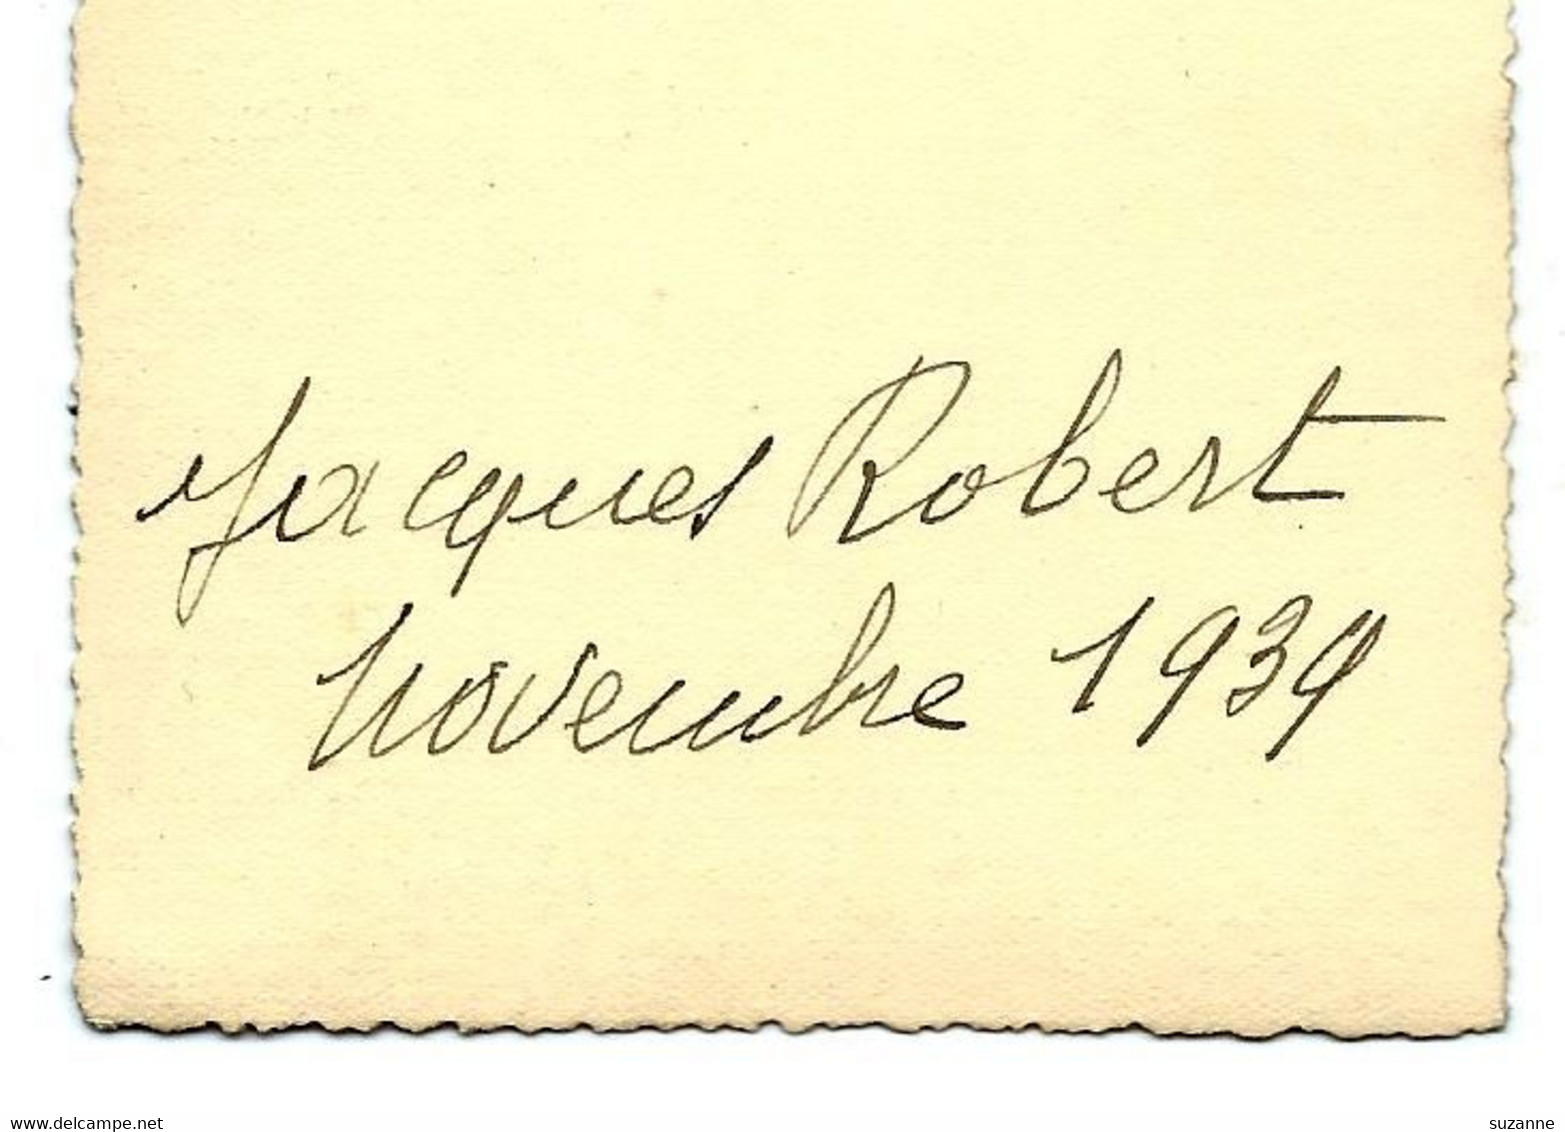 Jacques Robert
Novembre 1939
www.delcampe.net
suzanne